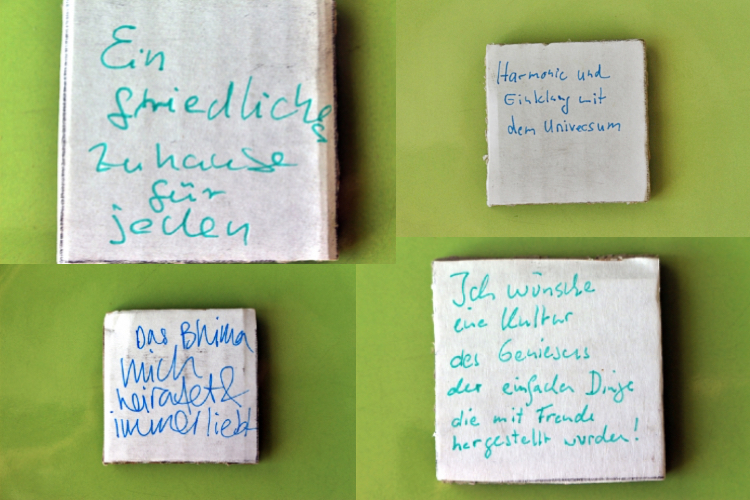 Ein
friedliches
zuhause
für
jeden
Harmonie und
Einklang mit
dem Universum
Das Bhima
mich
heiratet &
immer liebt
Ich wünsche
eine Kultur
des Geniesens
der einfachen Dinge
die mit Freude
hergestellt wurden!